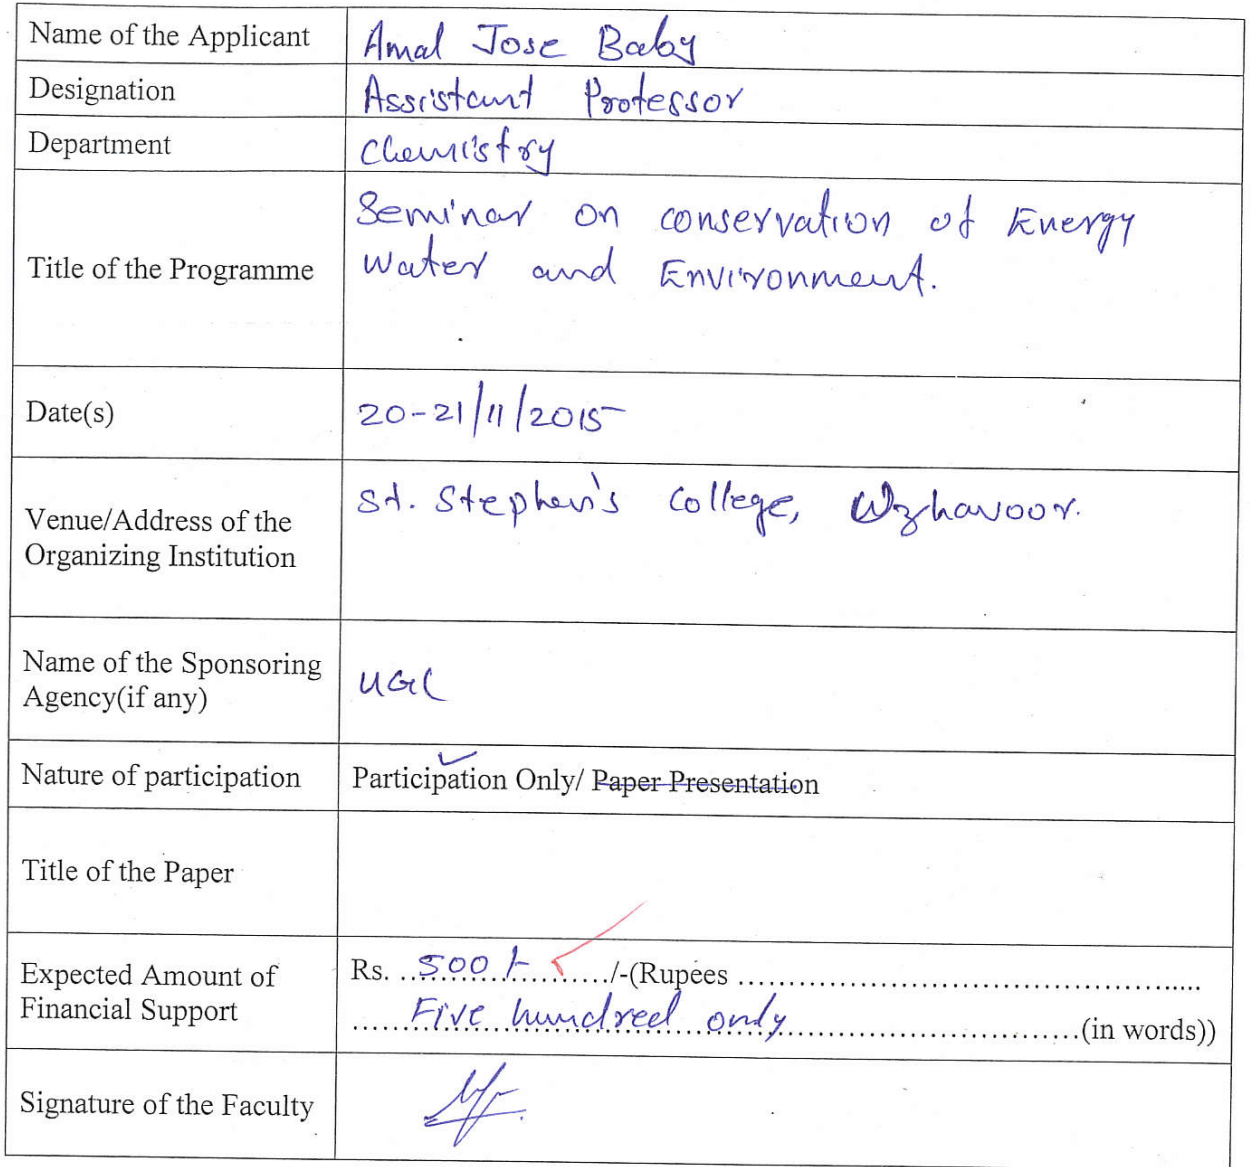 Name of the Applicant Amal Jose Baby
Designation Assistant Professor
Department Chemistry
Title of the Programme
Seminar on conservation of Energy
Water and Environment.
Date(s) 20-21/11/2015
Venue/Address of the
Organizing Institution
St. Stephen's College, Uzhavoor.
Name of the Sponsoring
Agency(if any)
UGC
Nature of participation Participation Only/ Paper Presentation
Title of the Paper
Expected Amount of
Financial Support
Rs. ...500/-.../-(Rupees ...............................................
.......Five hundred only.......................................(in words))
Signature of the Faculty